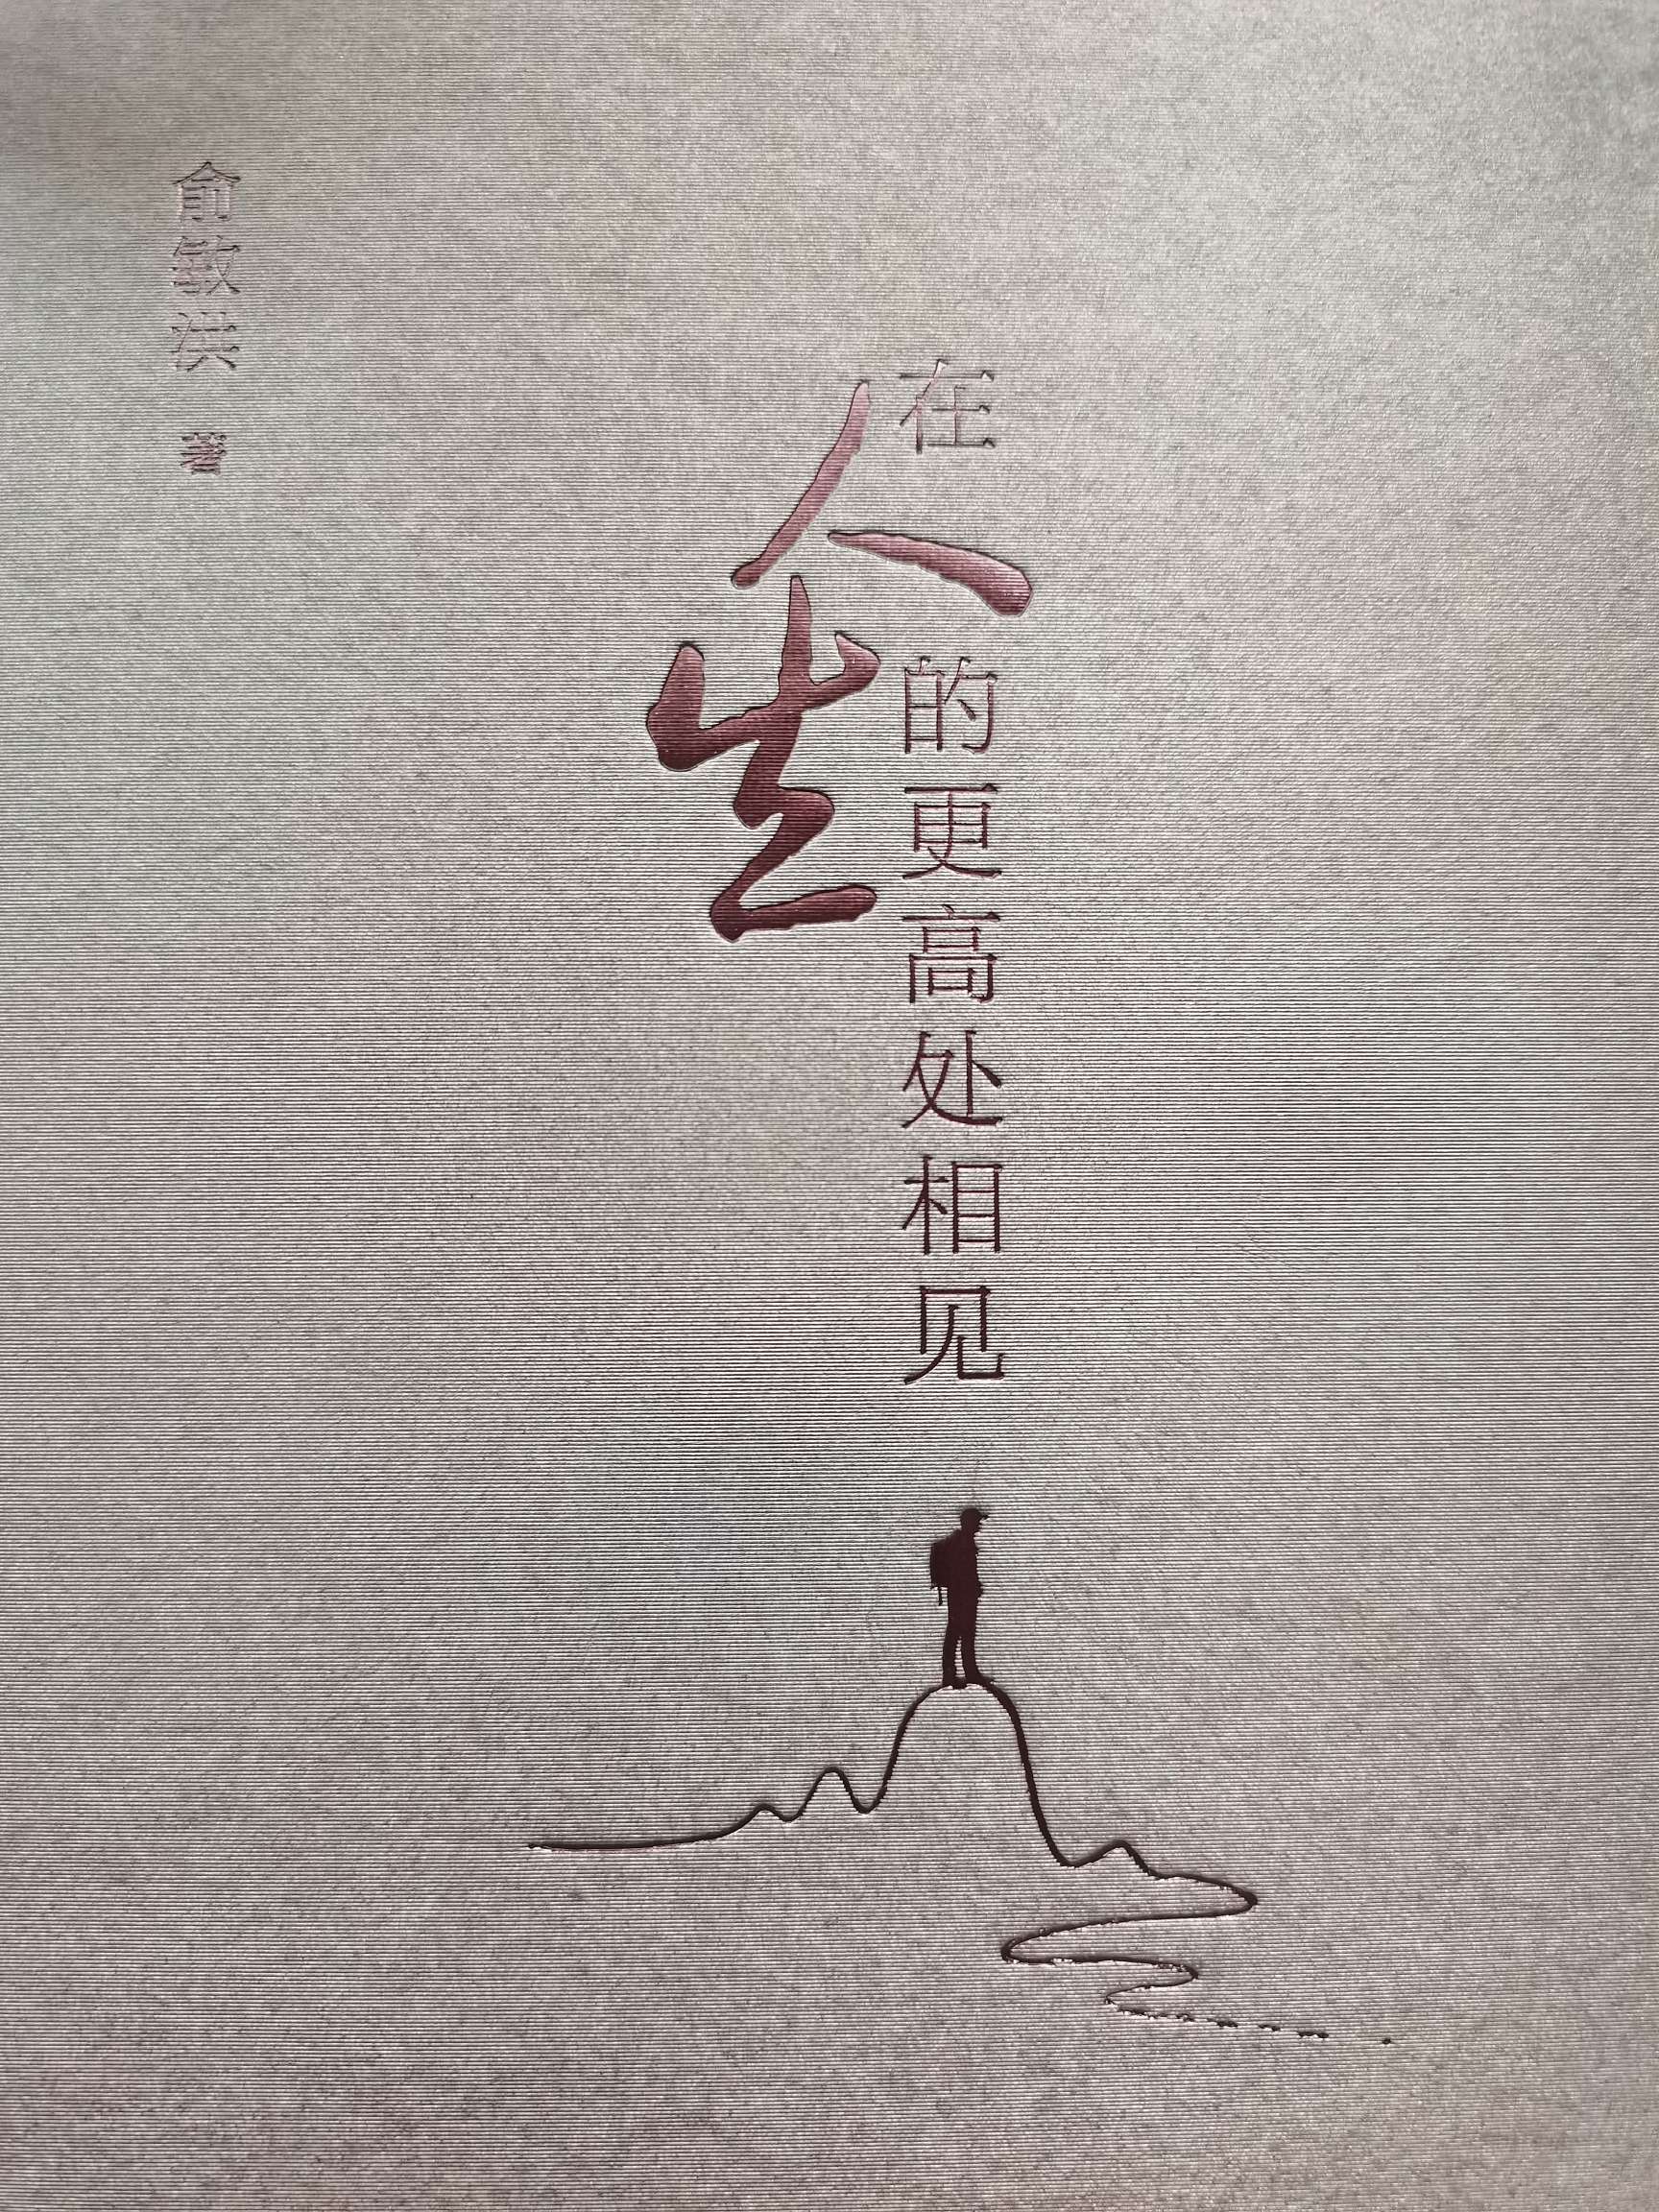 在人生的更高处相见
俞敏洪 著